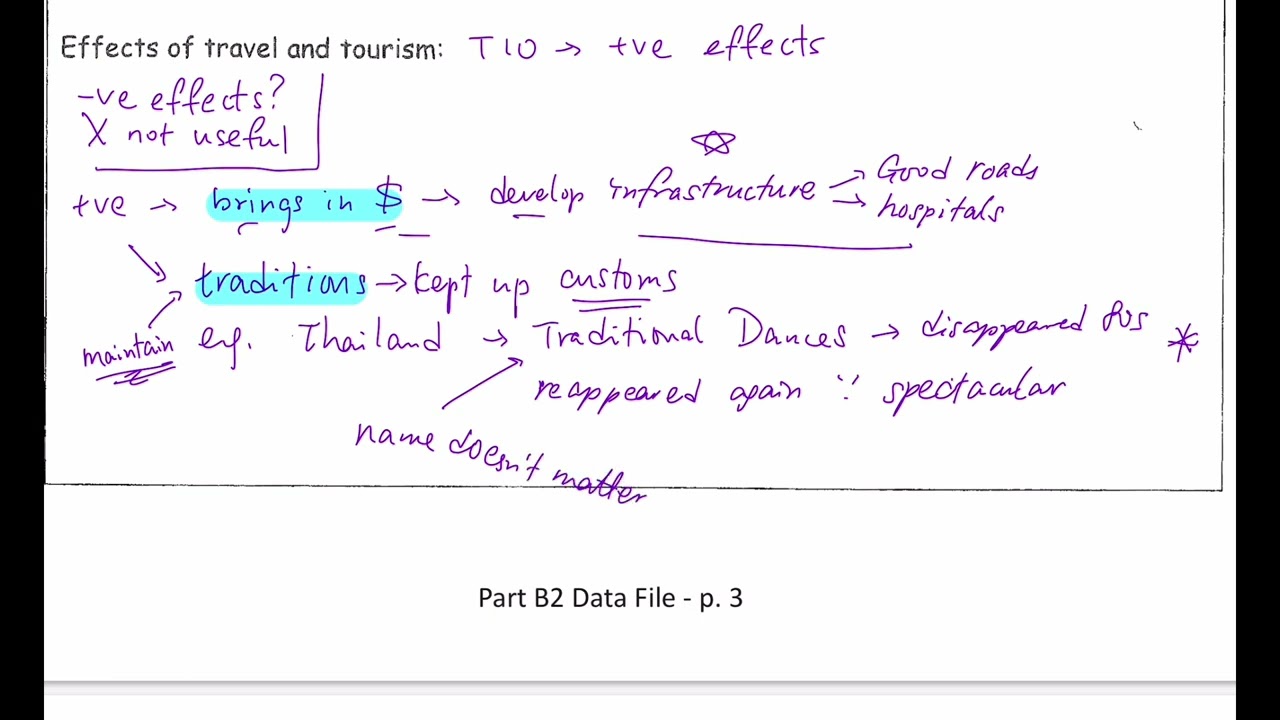 Effects of travel and tourism: T10 → +ve effects
-ve effects?
X not useful
+ve → brings in $ → develop infrastructure → Good roads
→ hospitals
traditions → kept up customs
maintain e.g. Thailand → Traditional Dances → disappeared
reappeared again ∵ spectacular
name doesn't matter
Part B2 Data File - p. 3